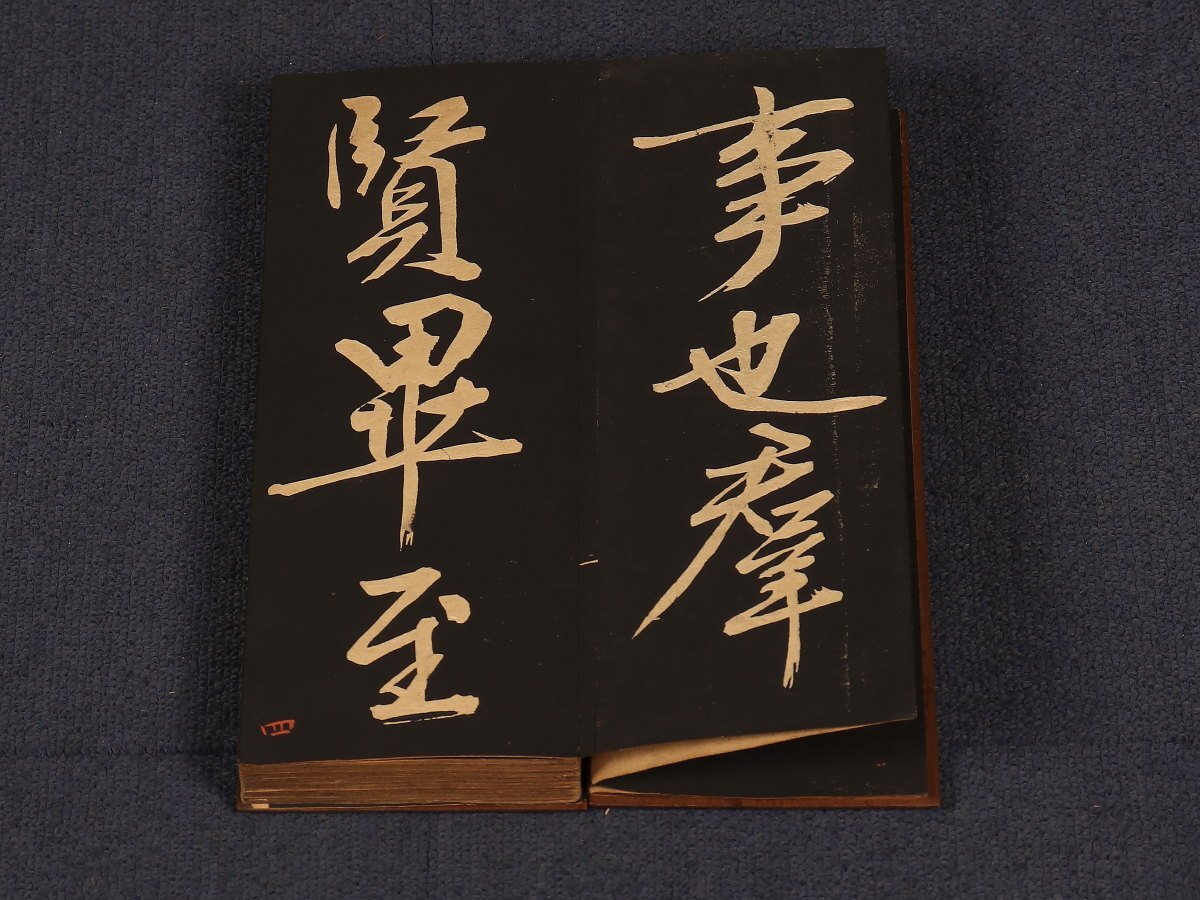 事也羣
賢畢至
四